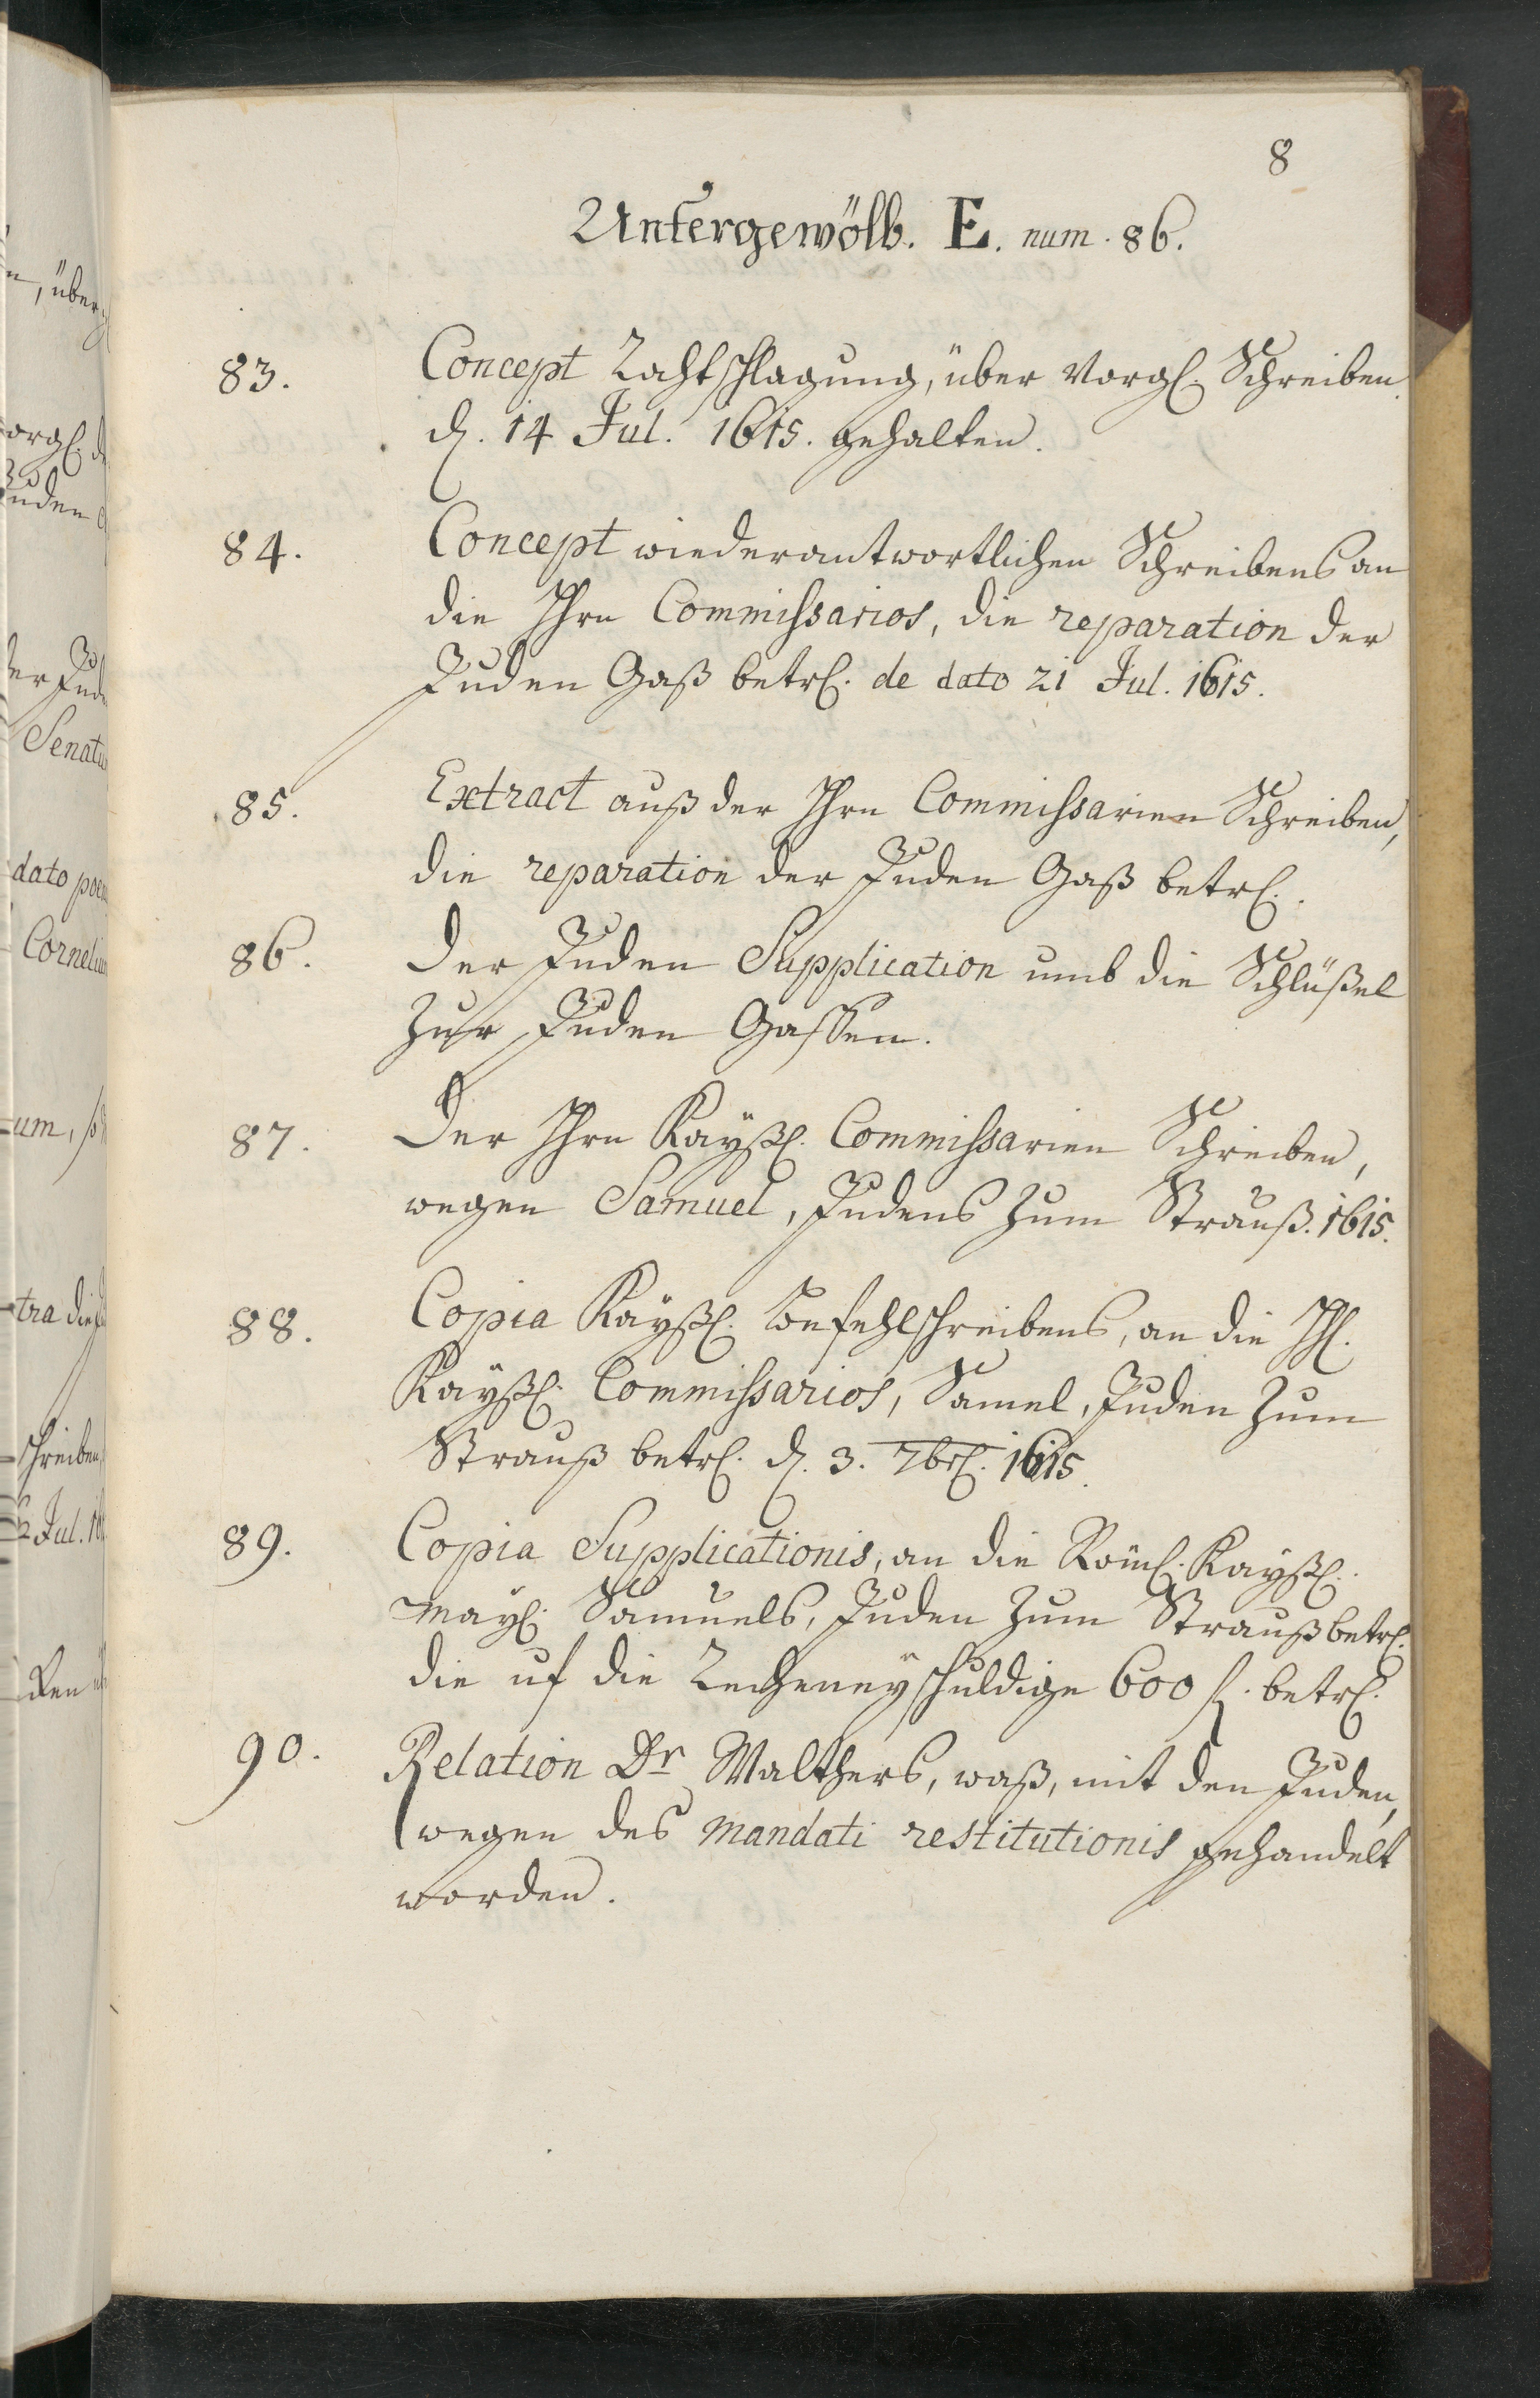 8
Untergewölb. E. num. 86.
83. Concept Rathschlagung, über Vorgl. Schreiben
d. 14 Jul. 1615. gehalten.
84. Concept wiederantwortlichen Schreibens an
die Hrn Commissarios, die reparation der
Juden Gaß betrl. de dato 21 Jul. 1615.
85. Extract auß der Hrn Commissarien Schreiben,
die reparation der Juden Gaß betrl.
86. Der Juden Supplication umb die Schlüßel
zur Juden Gassen.
87. Der Hrn Kayßl. Commissarien Schreiben,
wegen Samuel, Judens zum Strauß. 1615.
88. Copia Kayßl. Befehlschreibens, an die Hl.
Kayßl. Commissarios, Samel, Juden zum
Strauß betrl. d. 3. 7brl. 1615.
89. Copia Supplicationis, an die Röml. Kayßl.
Mayl. Samuels, Juden zum Strauß betrl.
die uf die Recheney schuldige 600 fl. betrl.
90. Relation Dr Walthers, waß, mit den Juden,
wegen des mandati restitutionis gehandelt
worden.